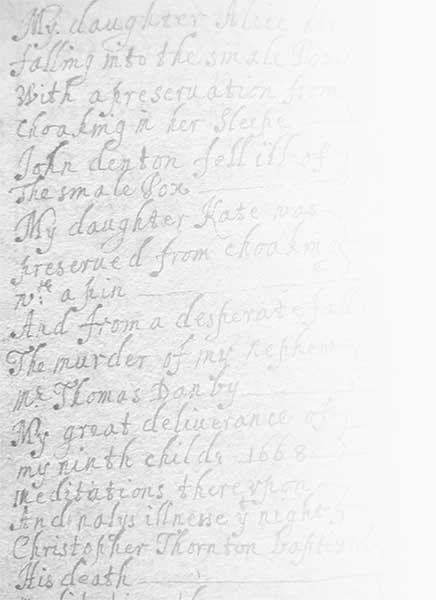 My daughter Alice
falling into the smale Pox
With a preseruation from
Choaking in her Sleepe
John denton fell ill of
The smale Pox
My daughter Kate was
preserued from choaking
wth a pin
And from a desperate fall
The murder of my nephew
mr Thomas Danby
My great deliverance of
my ninth childe 1668
meditations there vpon
And nalys illnesse yt night
Christopher Thornton baptised
His death